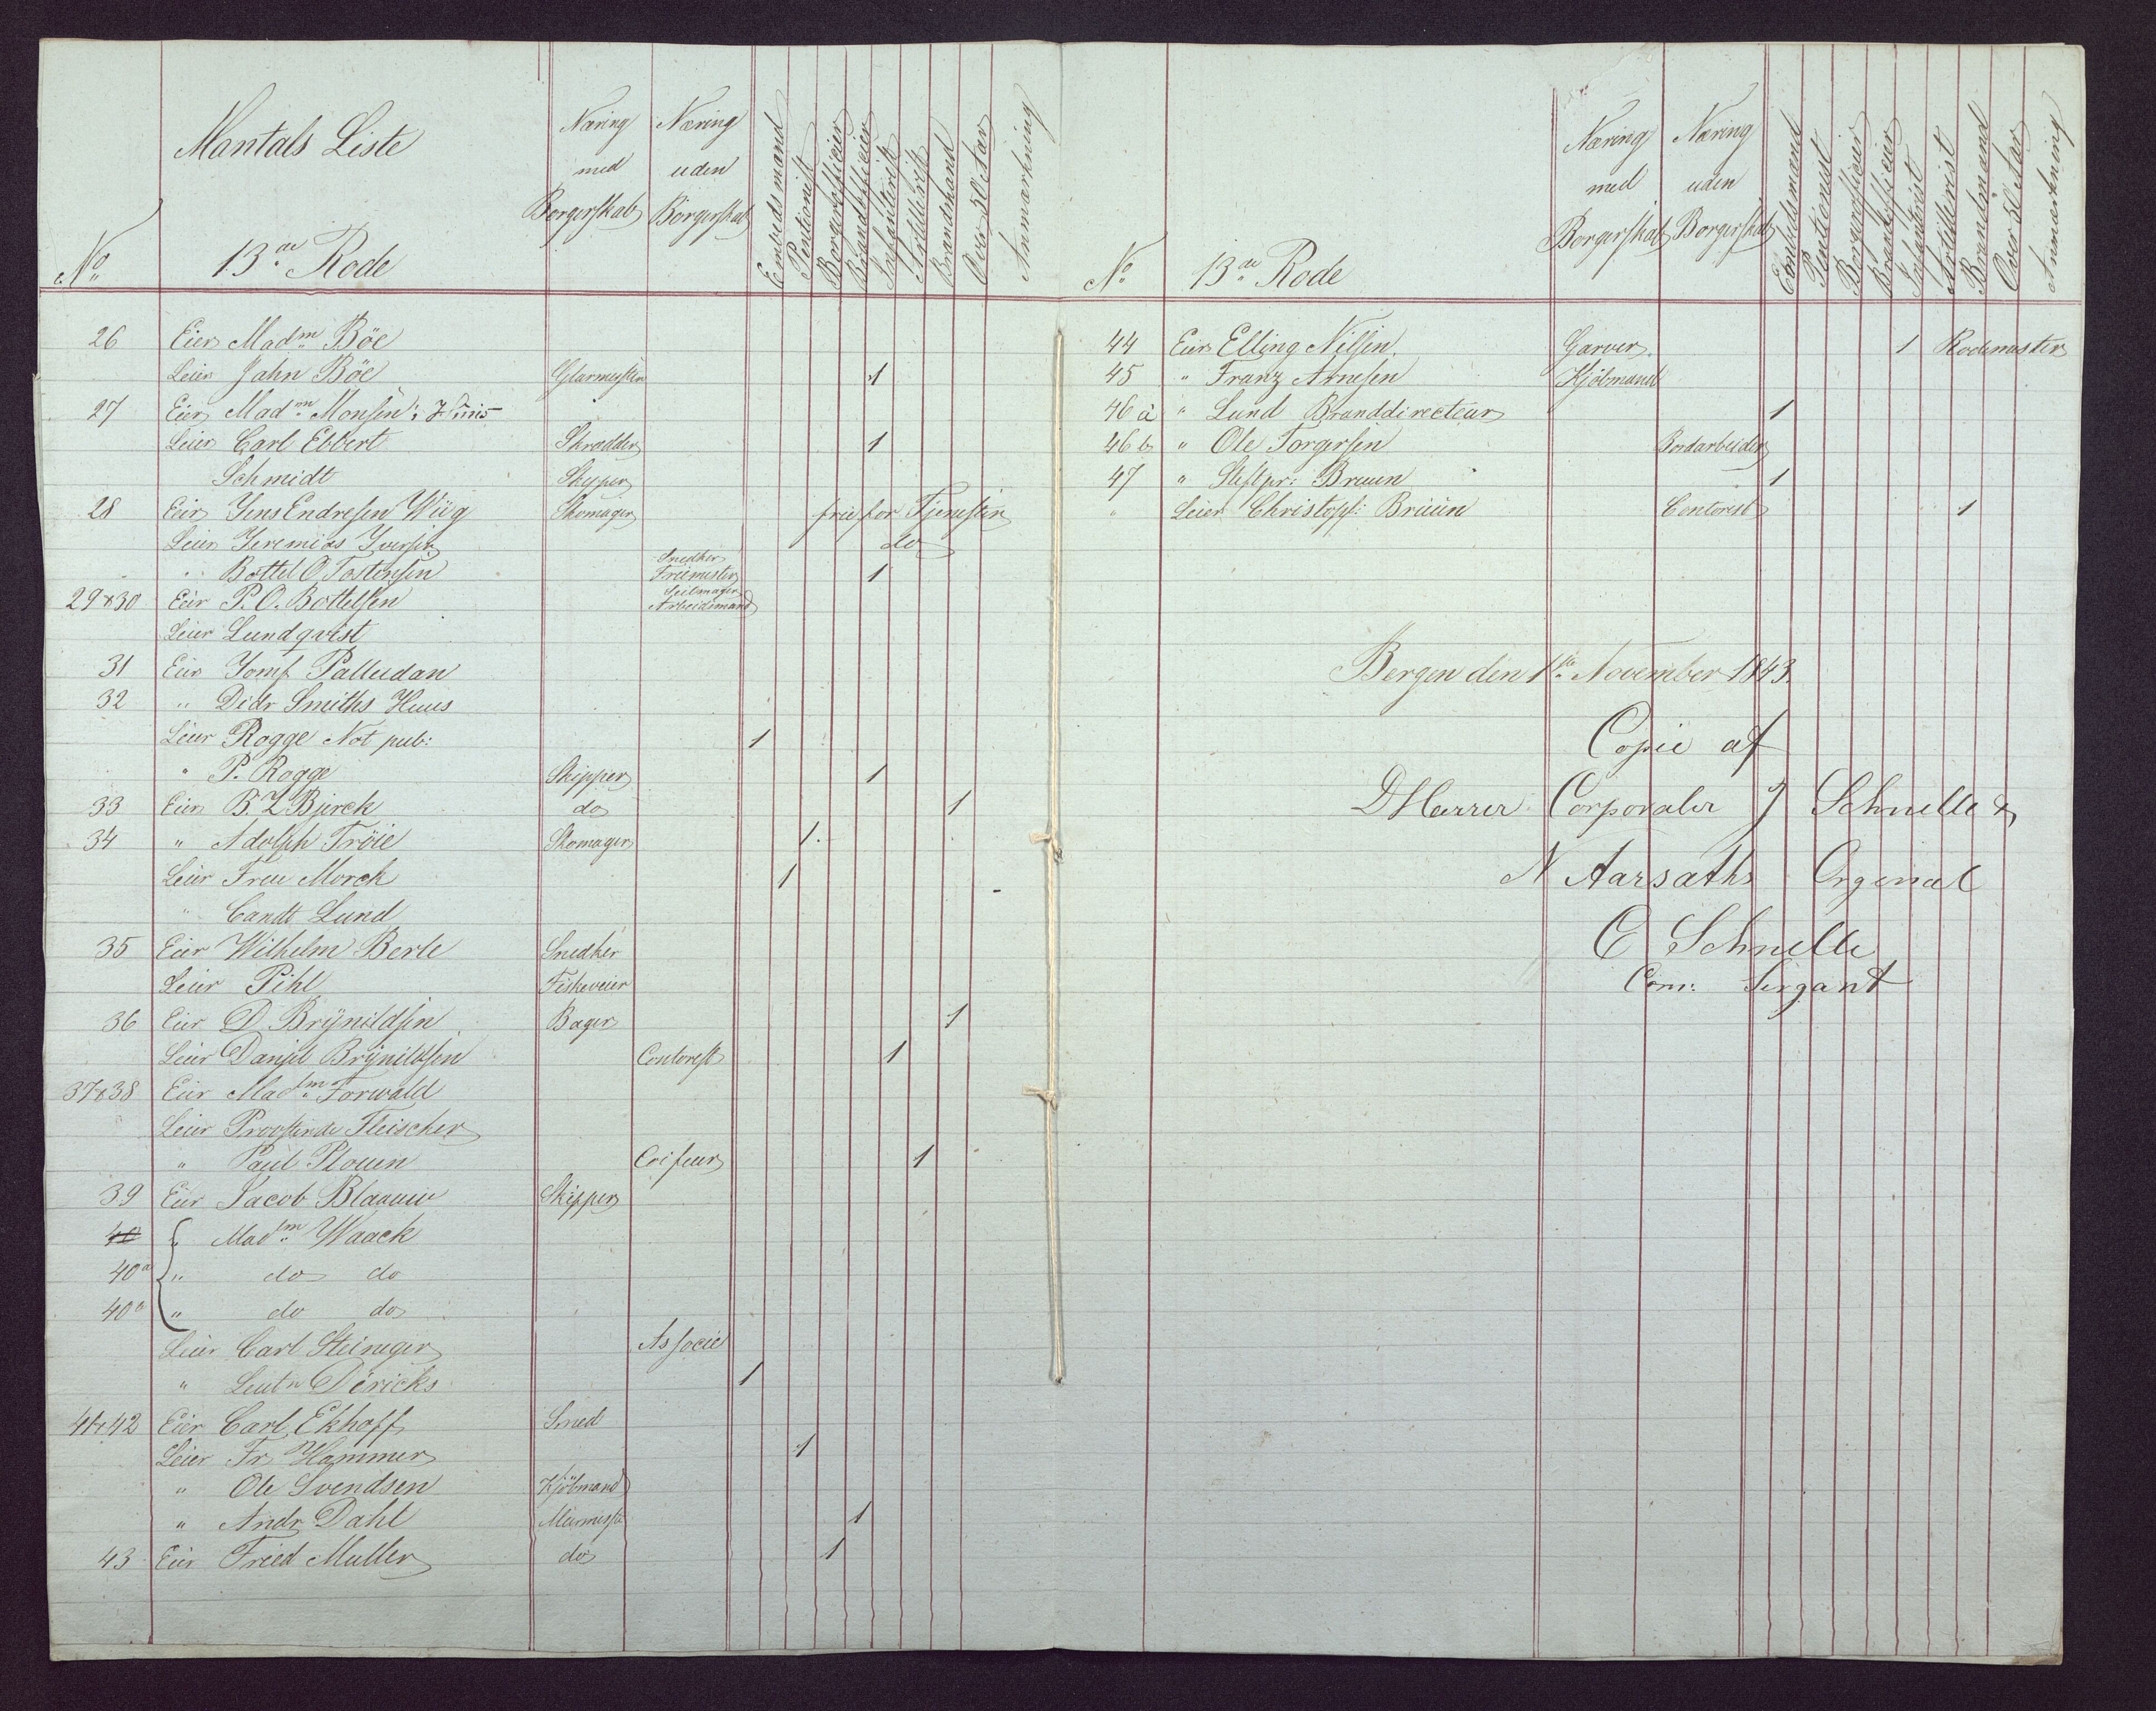 Mantals Liste
No 13de Rode
Næring med Borgerskab
Næring uden Borgerskab
Embedsmand
Pentionist
Borgerofficier
Brandofficier
Infanterist
Artillerist
Brandmand
Over 50 Aar
Anmærkning
26 Eier Madm Böe
Leier Jahn Böe Glarmester 1
27 Eier Madm Monsen's Huus
Leier Carl Ebbert Skrædder 1
Schmidt Skyper
28 Eier Jens Endresen Wiig Skomager frie for Tjenesten
Leier Jeremias Iversen do
" Bottel O Tostensen Snedker Friemester 1
29 & 30 Eier P. O. Bottelsen Seilmager Arbeidsmand
Leier Lundqvist
31 Eier Jomf Palludan
32 " Didr Smiths Huus
Leier Rogge Not pub: 1
" P. Rogge Skipper 1
33 Eier B. Z Bjerck do 1
34 " Adolph Tröie Skomager 1
Leier Frue Morck 1
" Candt Lund
35 Eier Wilhelm Berle Snedker
Leier Pihl Fiskeveier
36 Eier D Brÿnildsen Bager 1
Leier Danjel Brÿnildsen Contorist 1
37 & 38 Eier Madm Forwald
Leier Provstinde Fleischer
" Paul Plouen Coifeur 1
39 Eier Jacob Blaauw Skipper
40 " Madm Waack
40a " do do
40b " do do
Leier Carl Steineger Associe
" Leutn Dericks 1
41 & 42 Eier Carl Ekhoff Smed
Leier Fr Hammer 1
" Ole Svendsen Kjöbmand
" Andr Dahl Murmester 1
43 Eier Fried Muller do 1
No 13de Rode
Næring med Borgerskab
Næring uden Borgerskab
Embedsmand
Pentionist
Borgerofficier
Brandofficier
Infanterist
Artillerist
Brandmand
Over 50 Aar
Anmærkning
44 Eier Elling Nilsen. Garver. 1 Rodemester
45 " Franz Arnesen Kjöbmand
46 a " Lund Branddirecteur 1
46 b " Ole Torgersen Bordarbeider
47 " Stiftpr: Bruun 1
" Leier Christoph: Bruun Contorist 1
Bergen den 1ste November 1843.
Copie af
D Herrer Corporaler J Schnelle &
N Aarsæths Orginal
C Schnelle
Com: Sergant